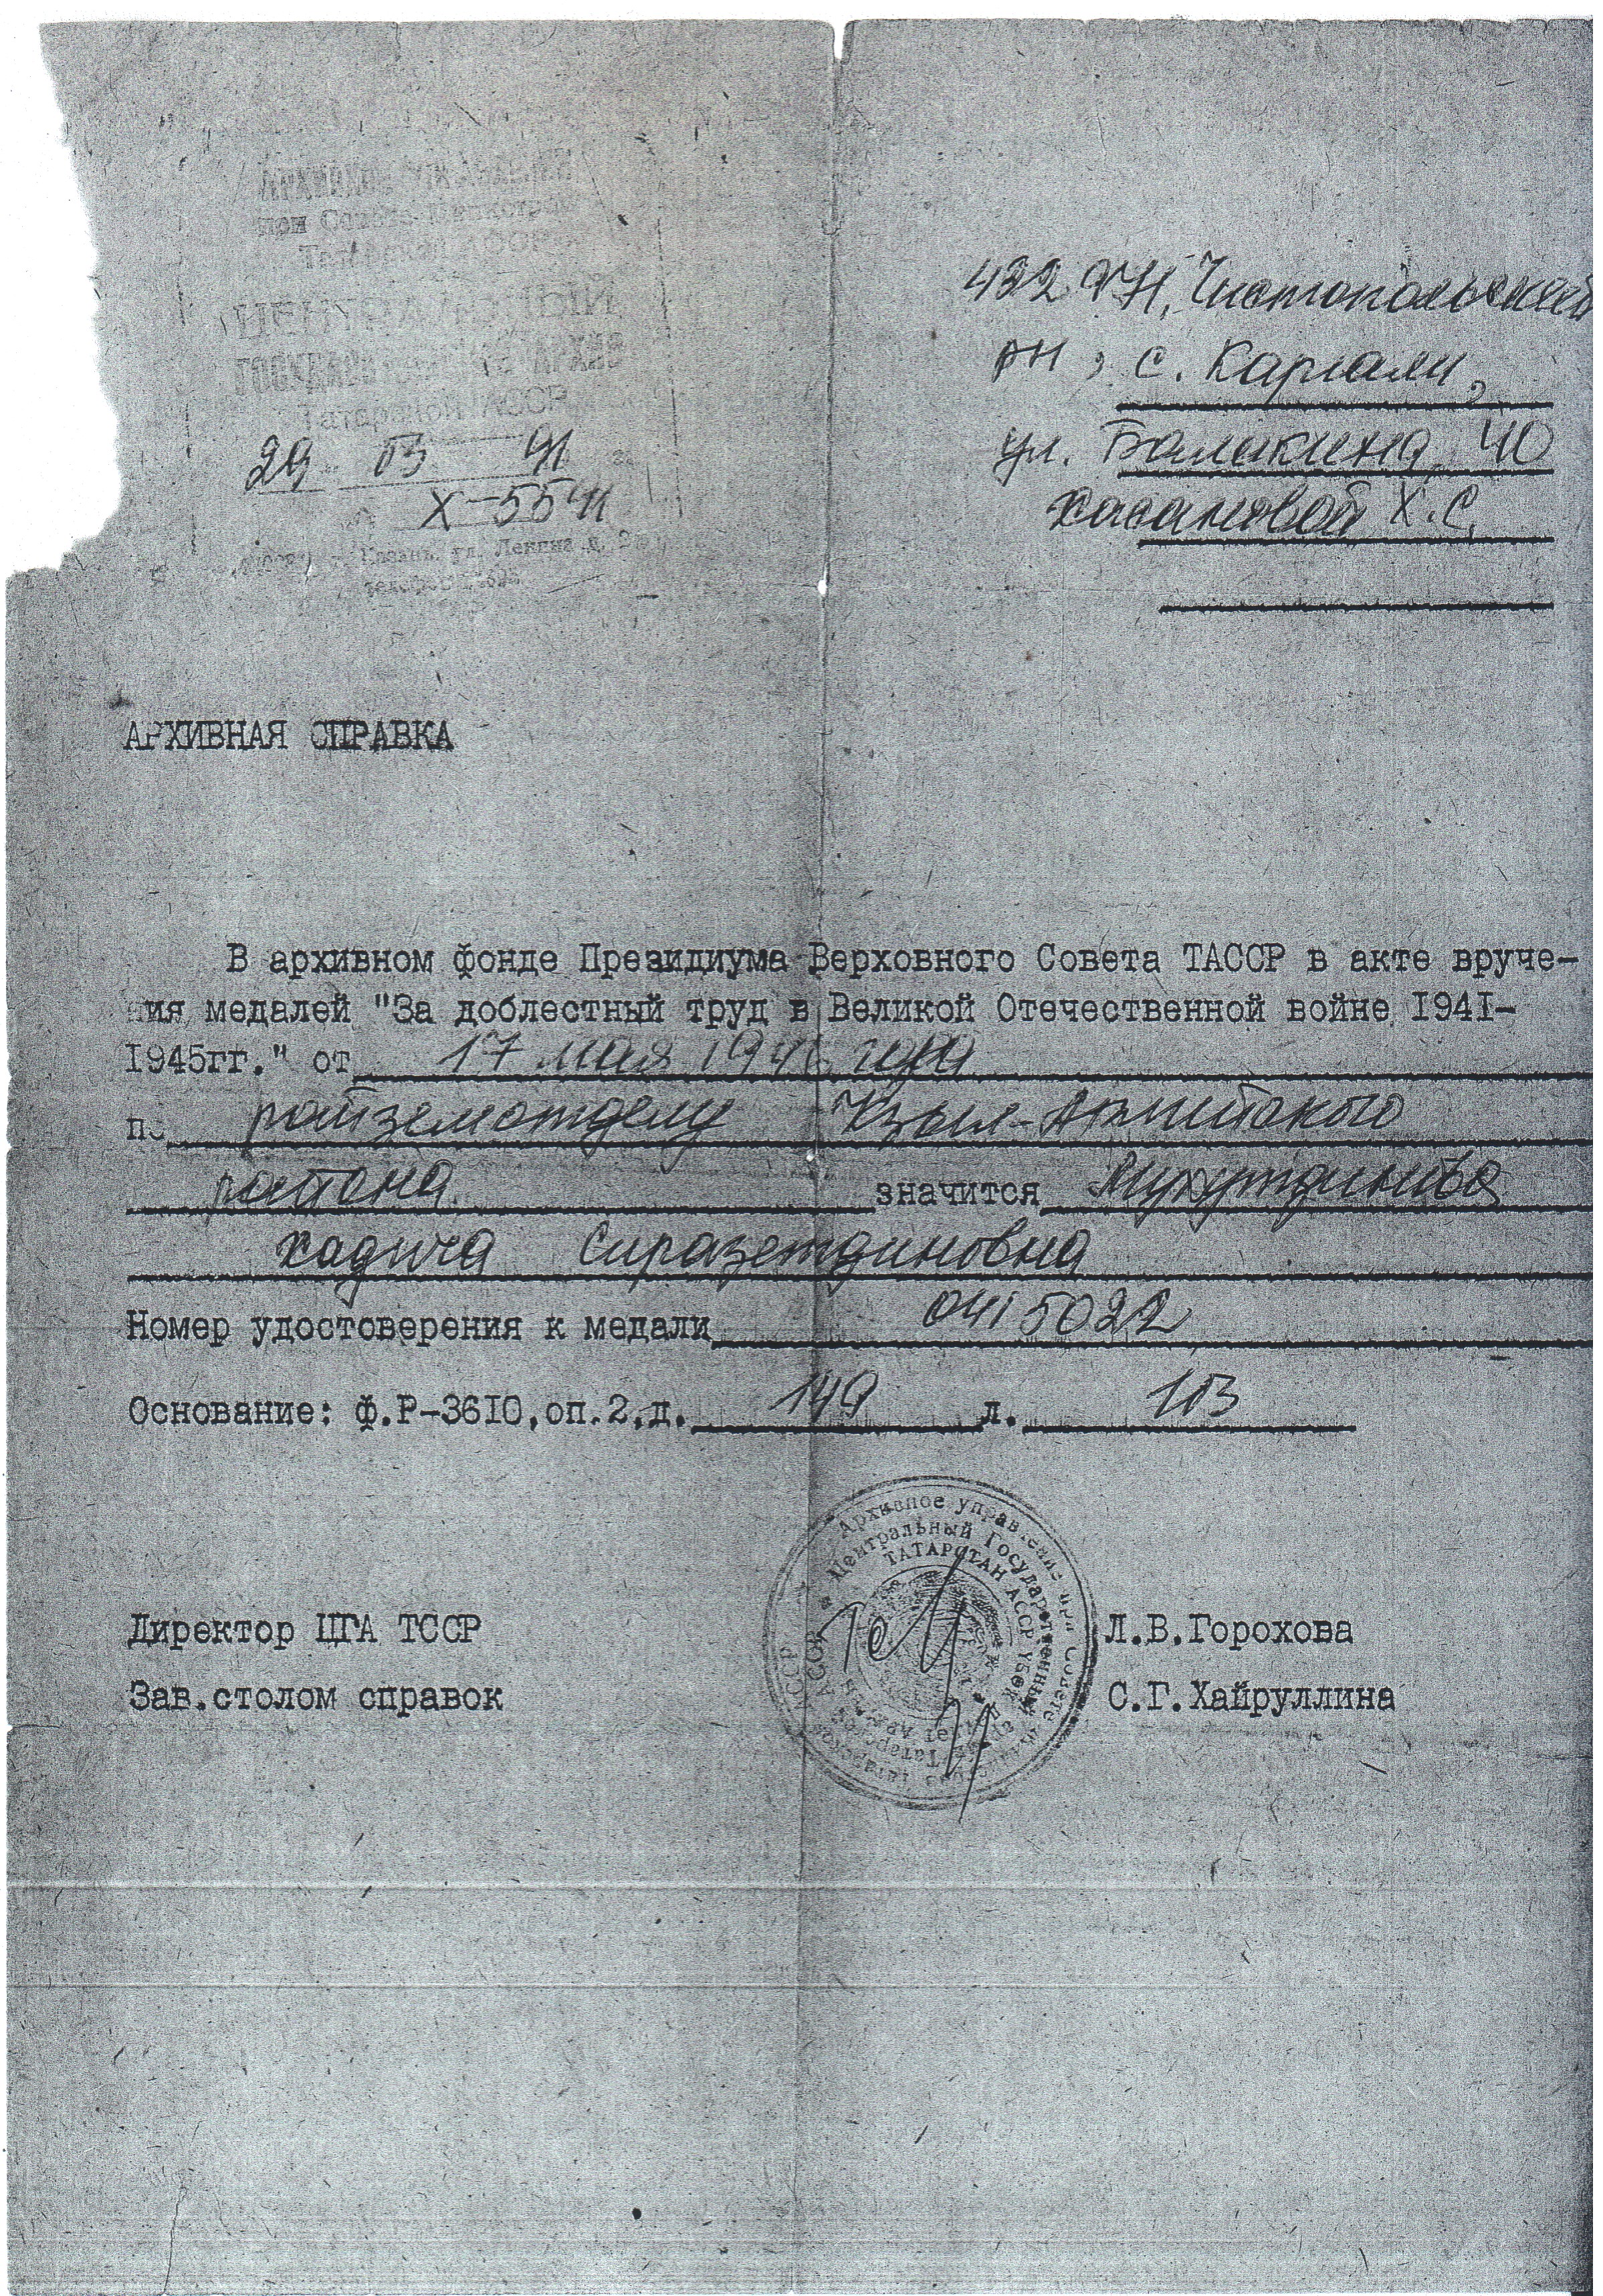 АРХИВНОЕ УПРАВЛЕНИЕ
при Совете Министров
Татарской АССР
ЦЕНТРАЛЬНЫЙ
ГОСУДАРСТВЕННЫЙ АРХИВ
Татарской АССР
29 03 91
Х-5541
Казань, ул. Ленина д.
телефон
Чистопольский
рн, с. Каргали,
ул. Балакина, 40
Хасановой Х.С.
АРХИВНАЯ СПРАВКА
В архивном фонде Президиума Верховного Совета ТАССР в акте вруче-
ния медалей "За доблестный труд в Великой Отечественной войне 1941-
1945гг." от 17 мая года
по райземотделу Кзыл-Армейского
района значится Мухутдинова
Хадича Сиразетдиновна
Номер удостоверения к медали 0415022
Основание: ф.Р-3610,оп.2,д. 149 л. 103
Архивное управление при Совете
Центральный Государственный
ТАТАРСТАН АССР
Директор ЦГА ТССР Л.В.Горохова
Зав.столом справок С.Г.Хайруллина